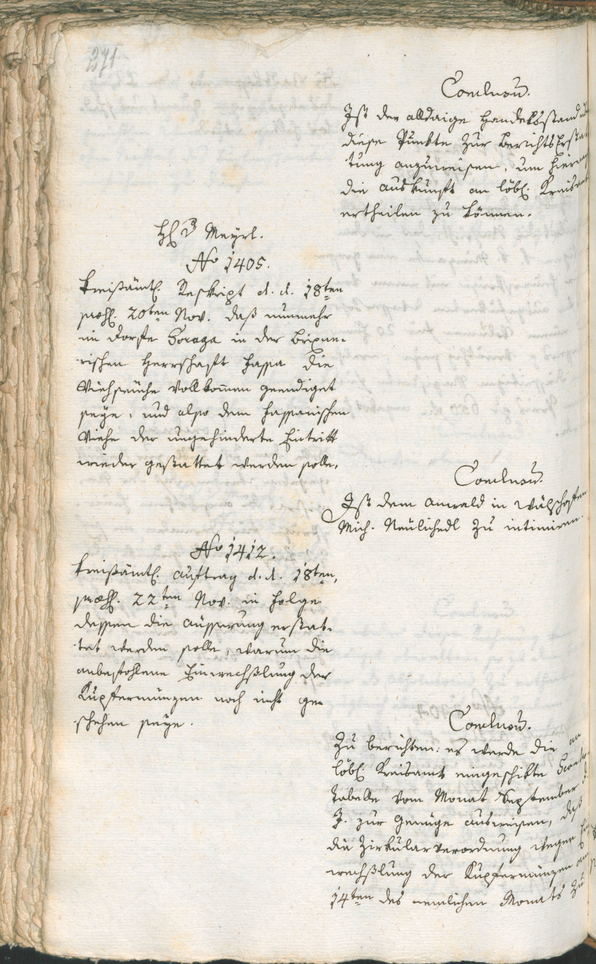 371
Conclusum.
Ist der alldaige Handelsstand
diese Punkte zur Berichts Erstat
tung anzuweisen, um hierv
die Auskunft an löbl. Kreisa
ertheilen zu können.
H. Meyrl.
No 1405.
Kreisämtl. Reskript d. d. 18ten
praes. 20ten Nov. daß nunmehr
im Dorfe Soraga in der Brixne-
rischen Herrschaft Fassa die
Viehseuche vollkommen geendiget
seye, und also dem Fassanischen
Viehe der ungehinderte Eintritt
wieder gestattet werden solle.
Conclusum.
Ist dem Anwald in Wälschnofen
Mich. Neulichedl zu intimiren.
No 1412.
Kreisämtl. Auftrag d. d. 18ten,
praes. 22ten Nov. in Folge
dessen die Äusserung erstat-
tet werden solle, warum die
anbefohlene Einwechslung der
Kupfermünzen noch nicht ge-
schehen seye.
Conclusum.
Zu berichten: es werde die an
löbl. Kreisamt eingeschikte
Tabelle vom Monat September
J. zur Genüge ausweisen, daß
die Zirkularverordnung wegen
wechslung der Kupfermünzen am
14ten des nemlichen Monats zu